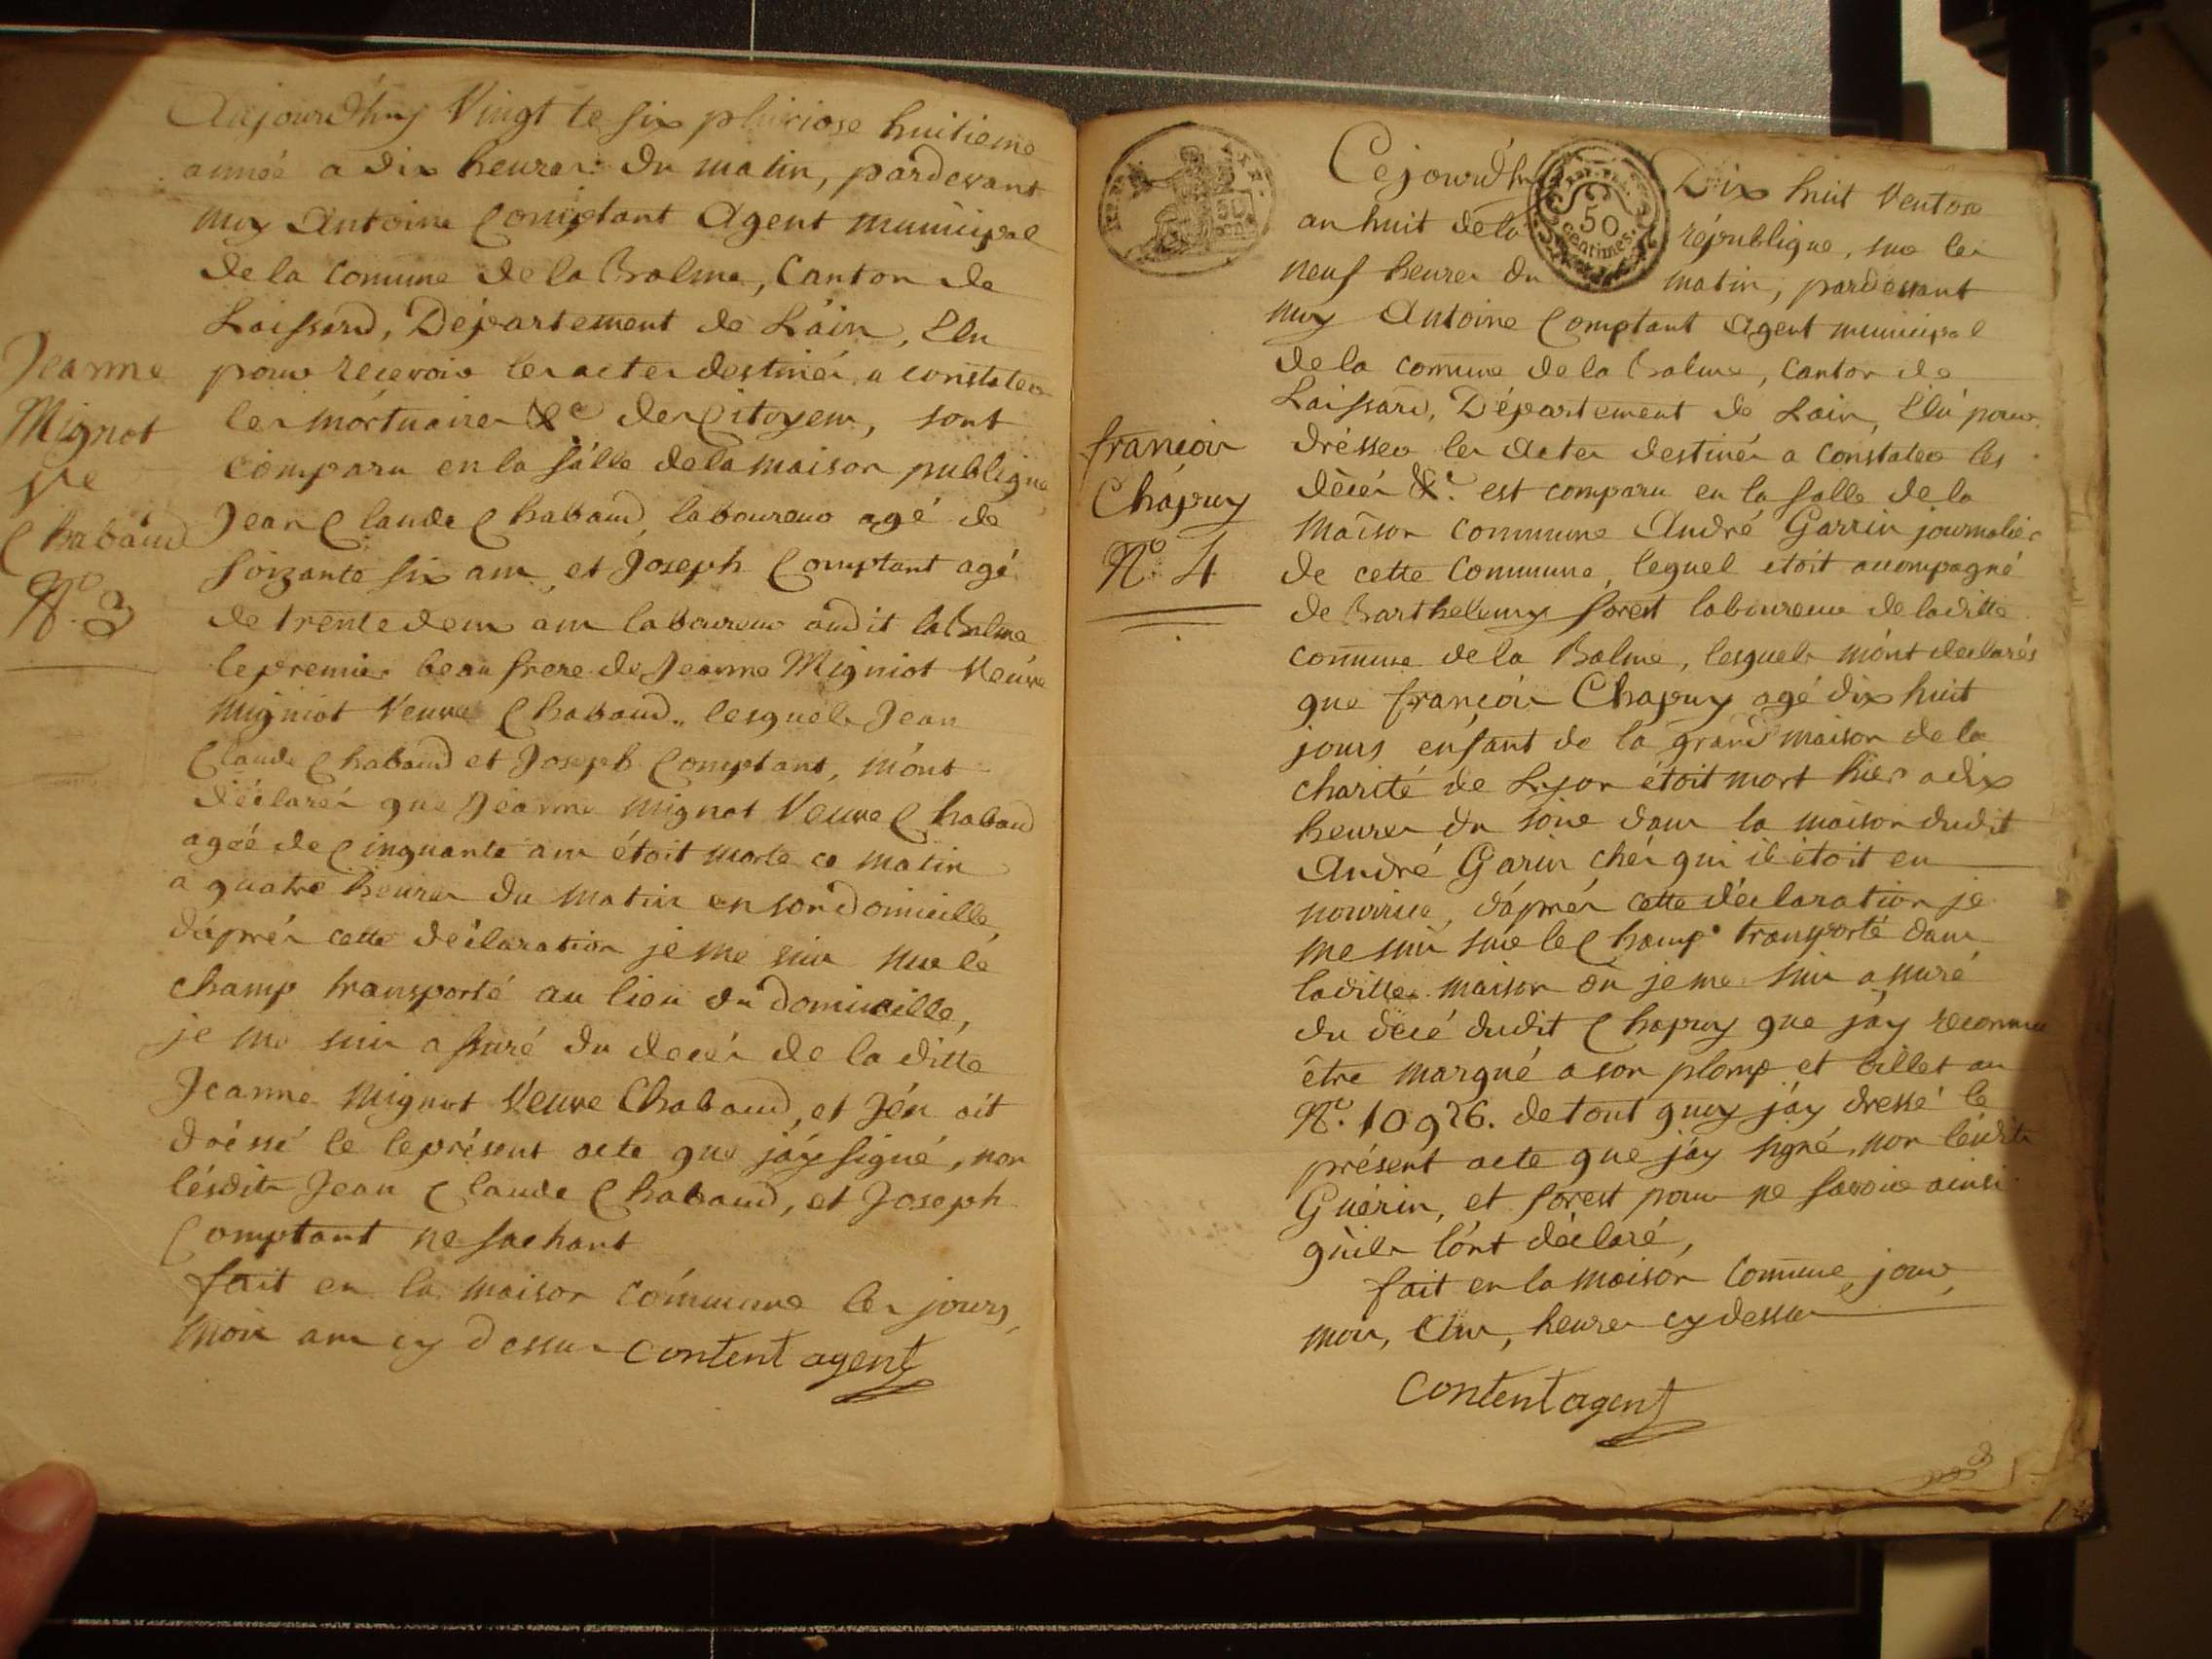 Aujourd'huy Vingt te six pluviose huitieme
année a dix heures du matin, pardevant
moy Antoine Comptant Agent municipal
de la Comune de la Balme, Canton de
Laissard, Département de Láin, Elu
pour recevoir les actes destinés a constater
les mortuaires &c des Citoyens, sont
comparu en la sálle de la maison publique
Jean Claude Chabaud laboureur agé de
soizante six ans, et Joseph Comptant agé
de trente deux ans laboureur audit la Balme
le premier beau frere de Jeanne Migniot Veuve
Migniot Veuve Chabaud,, lesquels Jean
Claude Chabaud et Joseph Comptant, m'ónt
déclarés que Jeanne Mignot Veuve Chabaud
agéé de Cinquante ans étoit morte ce matin
a quatre heures du matin en son domicille,
dáprés cette déclaration je me suis sur le
champ transporté au lieu du domicille,
je me suis assuré du decés de la ditte
Jeanne Mignot Veuve Chabaud, et J'én ait
dréssé le le présent acte que j'áy signé, non
lésdits Jean Claude Chabaud, et Joseph
Comptant ne sachant
fait en la maison commune les jours,
mois ans cy dessus Content agent
Jeanne
Mignot
Ve
Chabaud
N.o 3
REP. FRA.
50
Centimes.
Cejourd'huy Dix huit Ventose
an huit de la république, sur les
neuf heures du matin, pardevant
moy Antoine Comptant Agent municipal
de la comune de la Balme, Canton de
Laissard, Département de Lain, Elú pour
drésser les actes destinés a constater les
décés &c. est comparu en la salle de la
maison commune André Garrin journalier
de cette Commune, lequel etoit accompagné
de Barthellemy forest laboureur de laditte
comune de la Balme, lesquels m'ónt declarés
que françois Chapuy agé dix huit
jours enfant de la grand maison de la
charité de Lyon étoit mort hier a dix
heures du soire dans la maison dudit
André Garin chés qui il étoit en
nourrice, dáprés cette déclaration je
me suis sur le Champ transporté dans
laditte maison ou je me suis assuré
du décé dudit Chapuy que jáy reconnu
être marqué a son plomp et billet au
N.o 10926. de tout quoy jáy dressé le
présent acte que jáy signé, non lésdits
Guérin, et forest pour ne savoire ainsi
quils lónt déclaré,
fait en la maison Comune, jour,
mois, ans, heures cy dessus
Content agent
françois
Chápuy
N.o 4